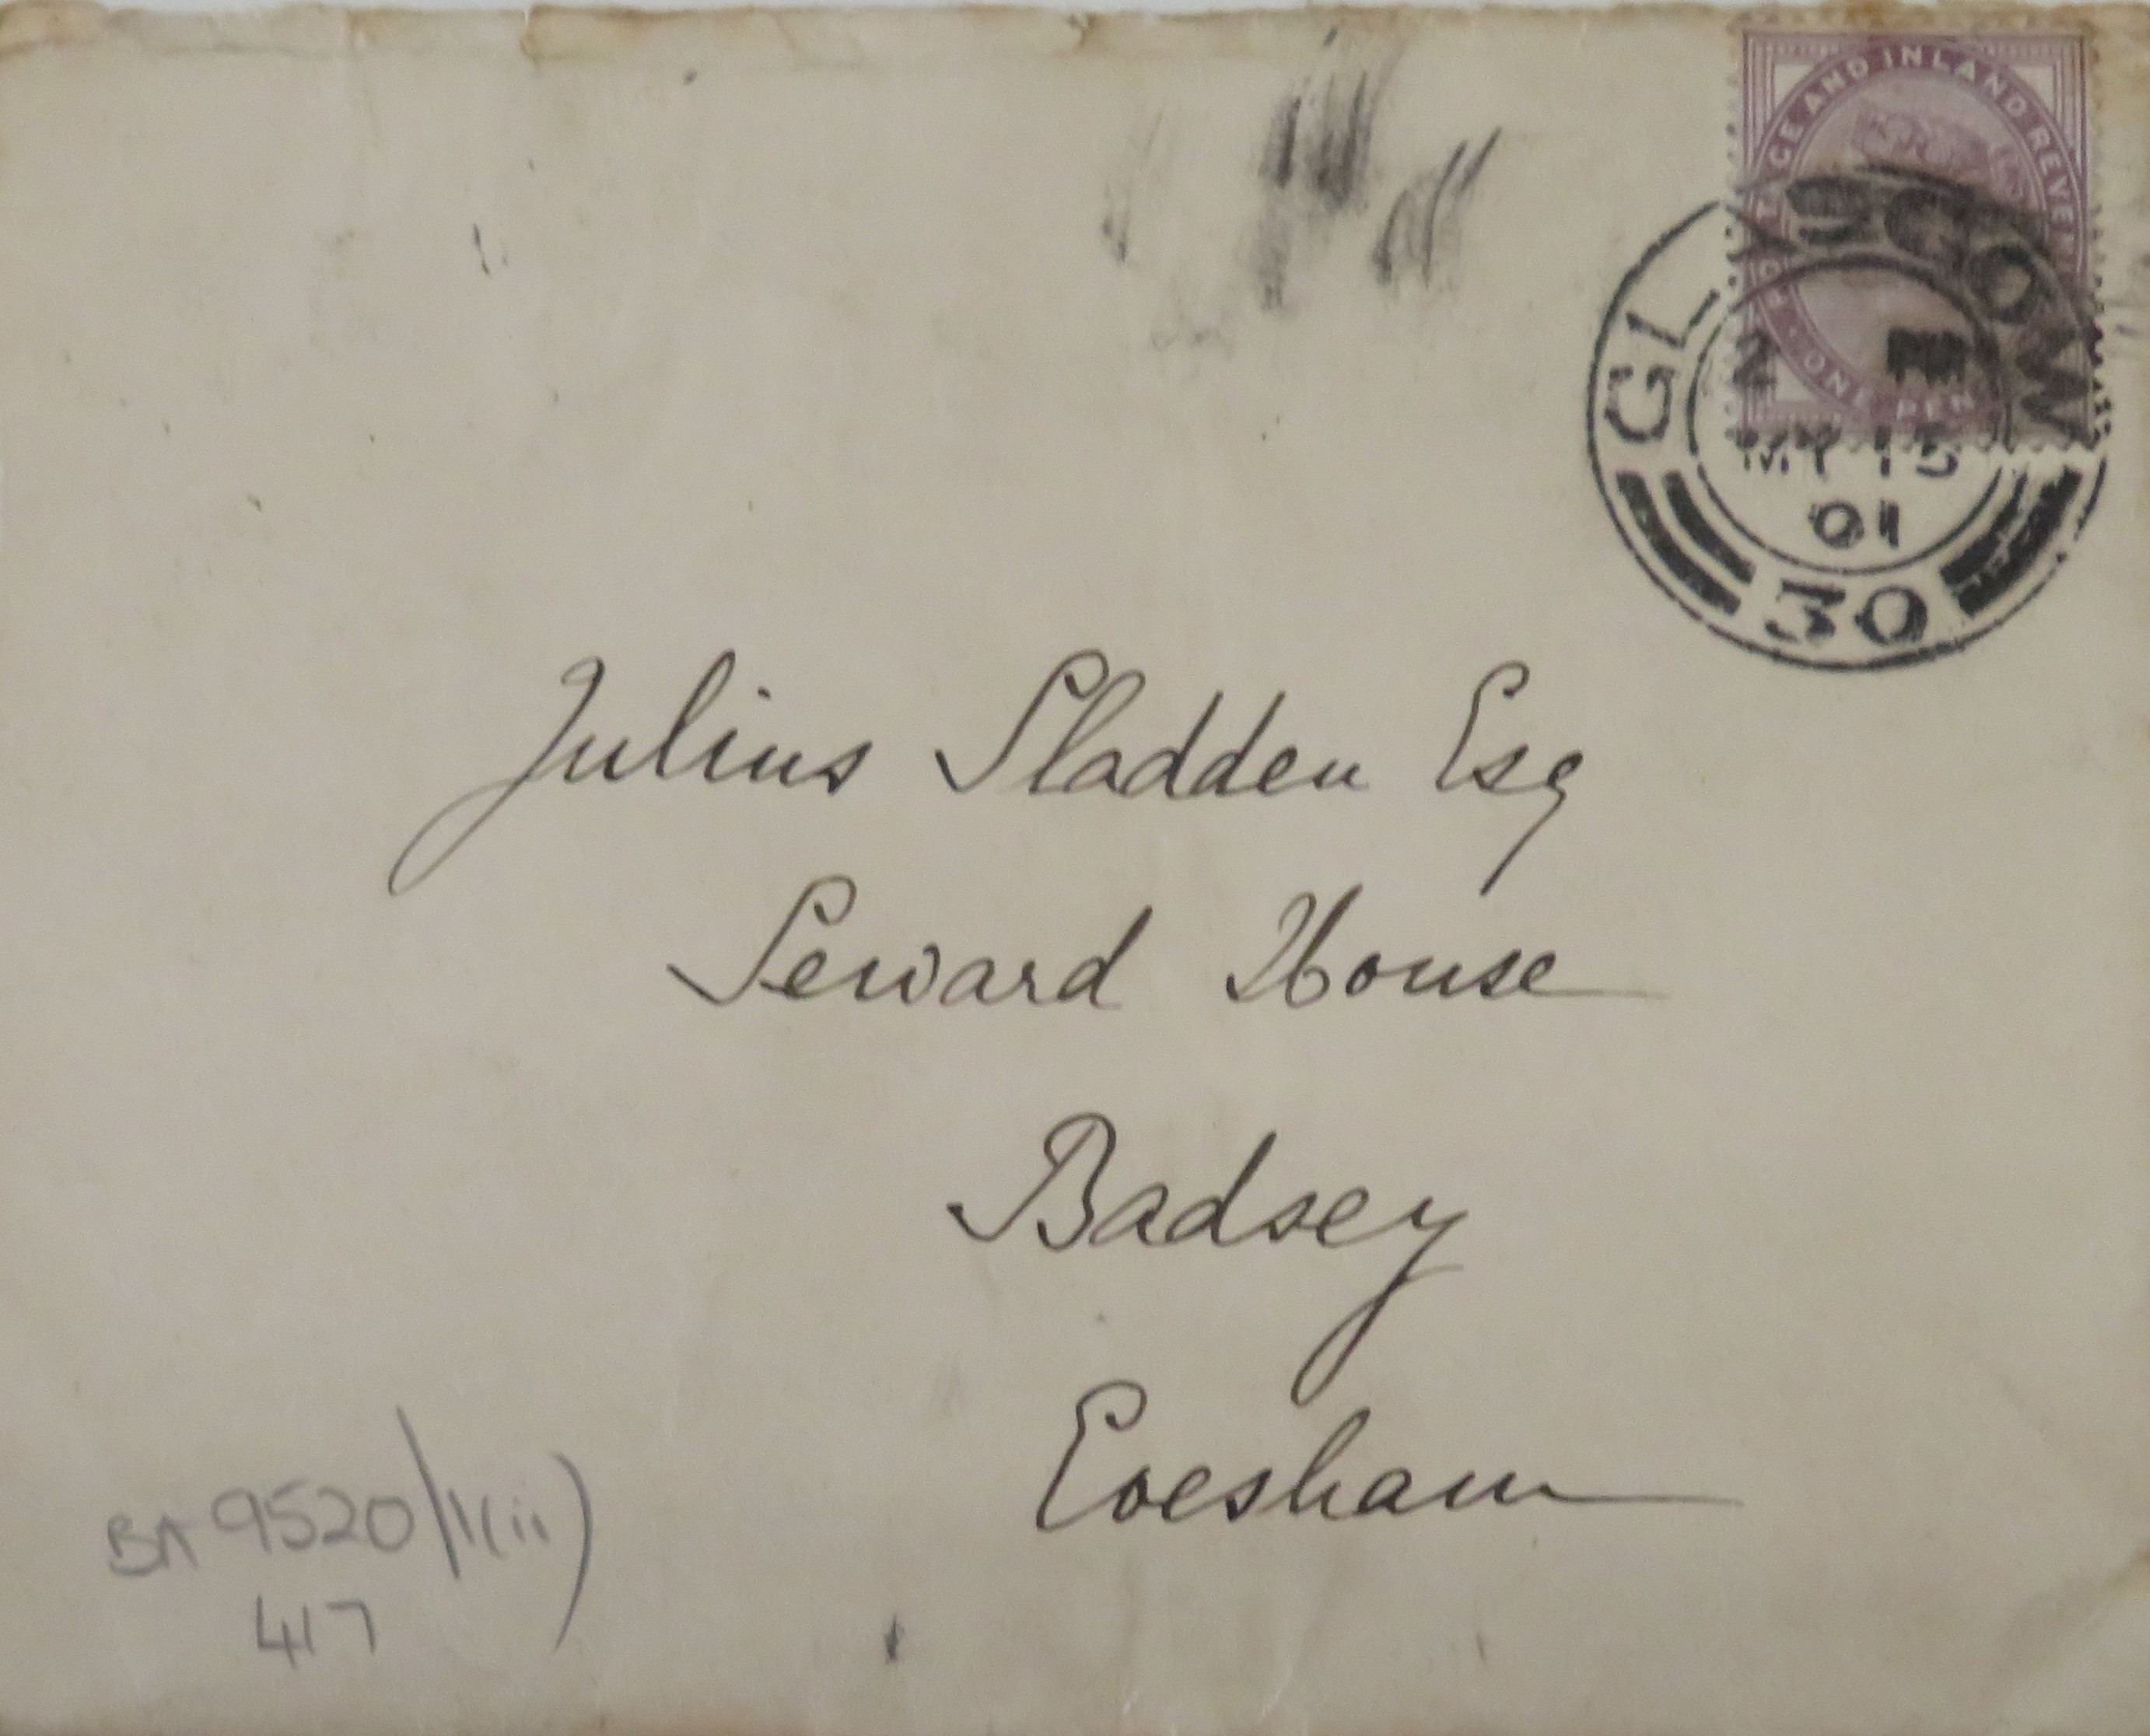 POSTAGE AND INLAND REVENUE
ONE PENNY
GLASGOW
MY 15
01
30
Julius Sladden Esq
Seward House
Badsey
Evesham
BA 9520/1(ii)
417